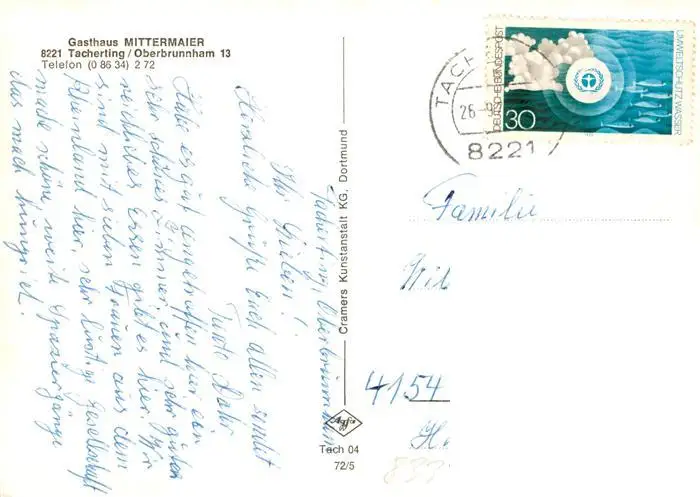 Gasthaus MITTERMAIER
8221 Tacherting / Oberbrunnham 13
Telefon (0 86 34) 2 72
Tacherting, Oberbrunnham
Ihr Lieben!
Habe es gut angetroffen hier ein
sehr schönes Zimmer, und sehr gutes
reichliches Essen gibt es hier. Wir
sind mit sieben Frauen aus dem
Rheinland hier, sehr lustige Gesellschaft
mache schöne weite Spaziergänge
das mach hungrich.
Herzliche Grüße Euch allen sendet
Tante
Cramers Kunstanstalt KG, Dortmund
Agfa
Tach 04
72/5
TACH
26
8221
DEUTSCHE BUNDESPOST
30
UMWELTSCHUTZ WASSER
Familie
4154